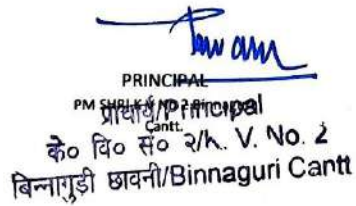 PRINCIPAL
PM SHRI K V NO 2 Binnaguri
Cantt.
प्राचार्य/Principal
के० वि० सं० २/K. V. No. 2
बिन्नागुड़ी छावनी/Binnaguri Cantt